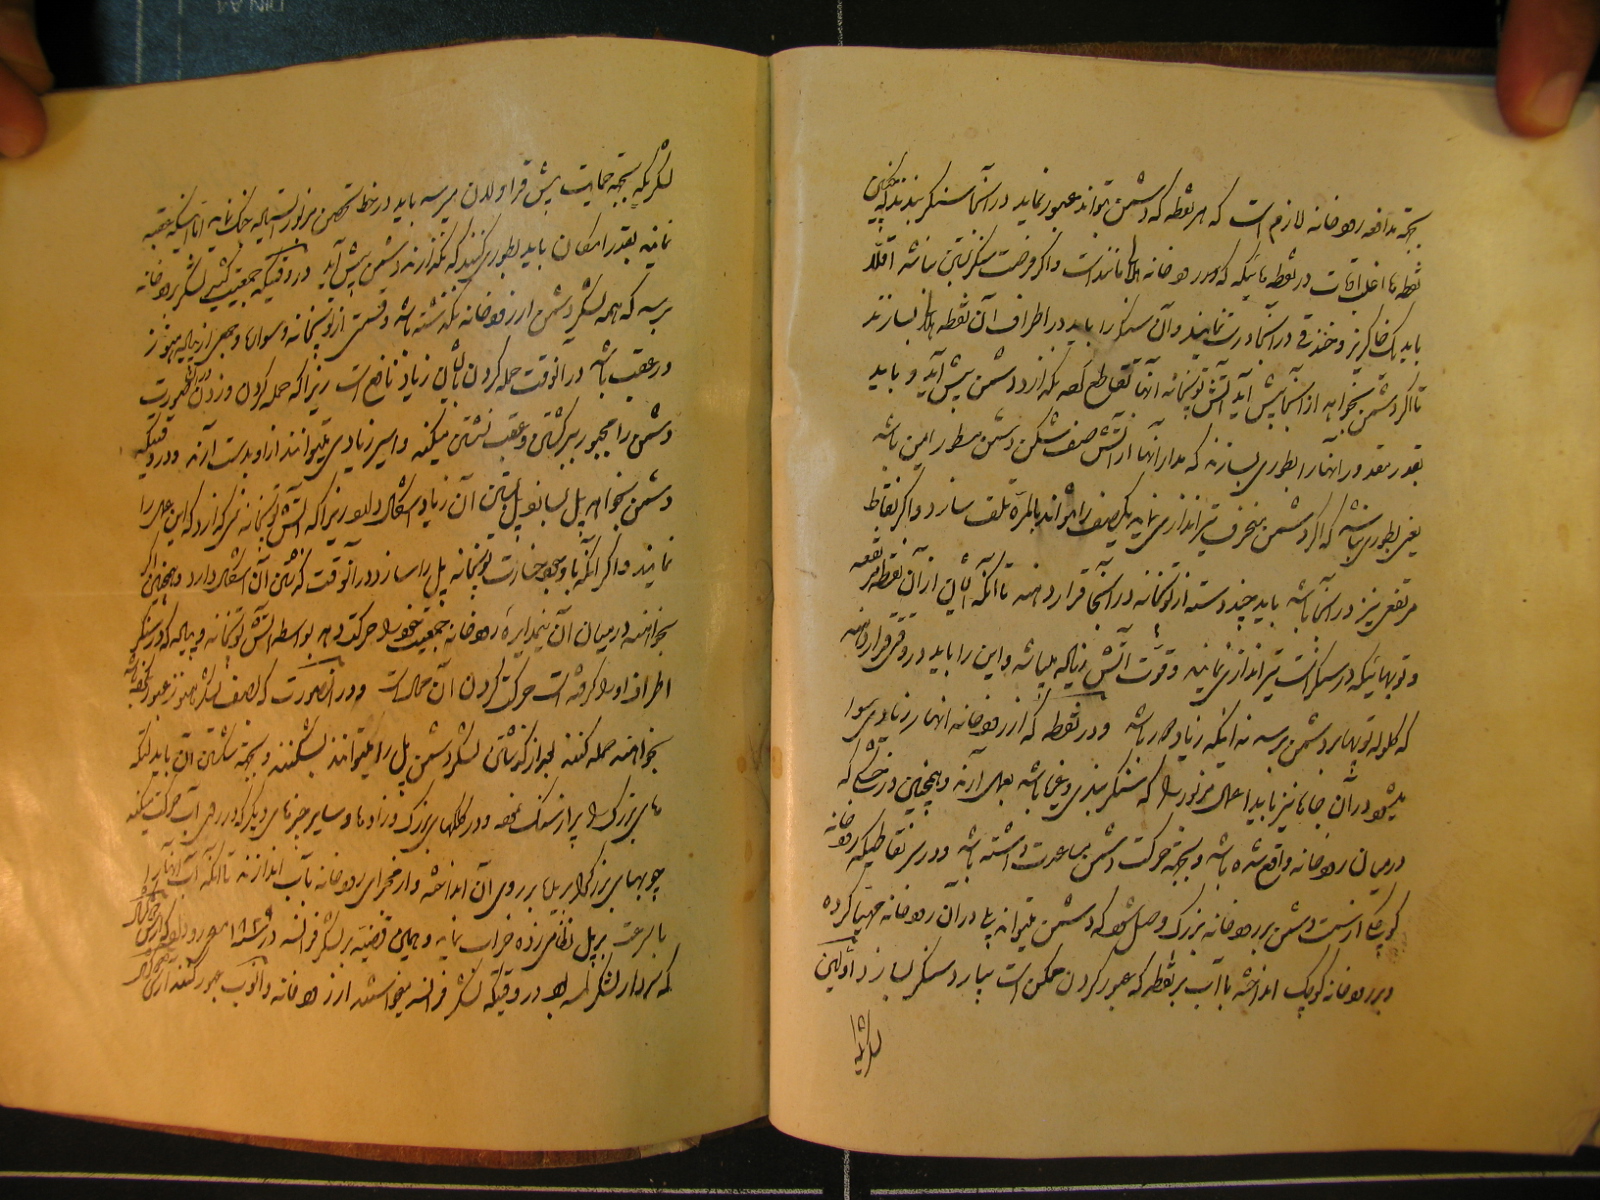 بجهة مدافعه رودخانه لازم است که هر نقطه که دشمن تواند عبور نماید در آنجا سنگر بندند
نقطه ها اغلب اوقات در نقطه هائیکه که در رودخانه مانند است و اگر فرصت سنگر بستن نباشد اقلا
باید یک خاکریز و خندقی در آنجا درست نمایند و آن سنگر را باید در اطراف آن نقطه بسازند
تا اگر دشمن بخواهد از آنجا پیش آید آتش توپخانه آنها تقاطع کرده نگذارد دشمن پیش آید و باید
بقدر مقدور آنها را بطوری بسازند که مدار آنها از آتش صف شکن دشمن بطور امین باشد
یعنی بطوری نباشد که اگر دشمن منحرف تیراندازی نماید یک صف را بتواند بالمره تلف سازد و اگر نقاط
مرتفعی نیز در آنجا باشد باید چند دسته از توپخانه در آنجا قرار دهند تا آنکه ایشان از آن نقطه مرتفعه
و توپهائیکه در سنگر است تیراندازی نمایند و قوت آتش زیاد باشد و این را باید در وقتی قرار دهند
که گلوله توپها بر دشمن برسد نه اینکه زیاد دور باشد و در نقطه که از رودخانه انهار زیادی سوا
میشود در آن جاها نیز باید اعمال مزبور را که سنگربندی و غیرها باشد بعمل آرند و همچنین در خشکی که
در میان رودخانه واقع شده باشد و بجهة حرکت دشمن مساعدت داشته باشد و در سر نقاطیکه رودخانه
کوچک از سمت دشمن بر رودخانه بزرگ وصل شود که دشمن میتواند پل در آن رودخانه مهیا کرده
در رودخانه کوچک انداخته با آب بر نقطه که عبور کردن ممکن است بیارد سنگر بسازد اولین
لشکریکه
لشکریکه بجهة حمایت پیش قراولان میرسد باید در خط تحصن مزبور ایستاده جنگ نمایند
نمایند بقدر امکان باید بطوری کنند که نگذارند دشمن پیش آید در وقتیکه جمعیت کثیر لشکر برودخانه
برسد که همه لشکر دشمن از رودخانه نگذشته باشد و قسمتی از توپخانه و سواره و بعضی از پیاده هنوز
در عقب باشد در آنوقت حمله کردن بایشان زیاد نافع است زیرا که حمله کردن و زدن در آن صورت
دشمن را مجبور ببرگشتن و عقب نشستن میکند و اسیر زیادی میتوانند از او بدست آرند و در وقتیکه
دشمن بخواهد پل بسازد پل بستن آن زیاد اشکال دارد زیرا که آتش توپخانه نمیگذارد که این عمل را
نمایند و اگر آنکه با وجود خسارت توپخانه پل را سازد در آنوقت گذشتن آن اشکال دارد و همچنین اگر
بخواهند در میان آن نیم دایره رودخانه جمعیت خود را حرکت دهد بواسطه آتش توپخانه و پیاده که در سنگر
اطراف او را گرفته است حرکت کردن آن محال است و در آنصورت که نصف لشکر هنوز عبور نکرده
بخواهند حمله کنند بعد از گذشتن لشکر دشمن پل را میتوانند بشکنند و بجهة شکستن آن باید
های بزرگ را پر از سنگ نموده و درکلکهای بزرگ و زورقها و سایر چیزهای دیگر که در روی آب حرکت میکند
چوبهای بزرگ را بر بالای بر روی آن انداخته و از مجرای رودخانه بآب اندازند تا آنکه آب آنها را
با سرعت بر پل نظامی زده خراب نماید و همین قضیه بر لشکر فرانسه در
که سردار لشکر نمسه بود در وقتیکه لشکر فرانسه میخواستند از رودخانه دانوب عبور کنند